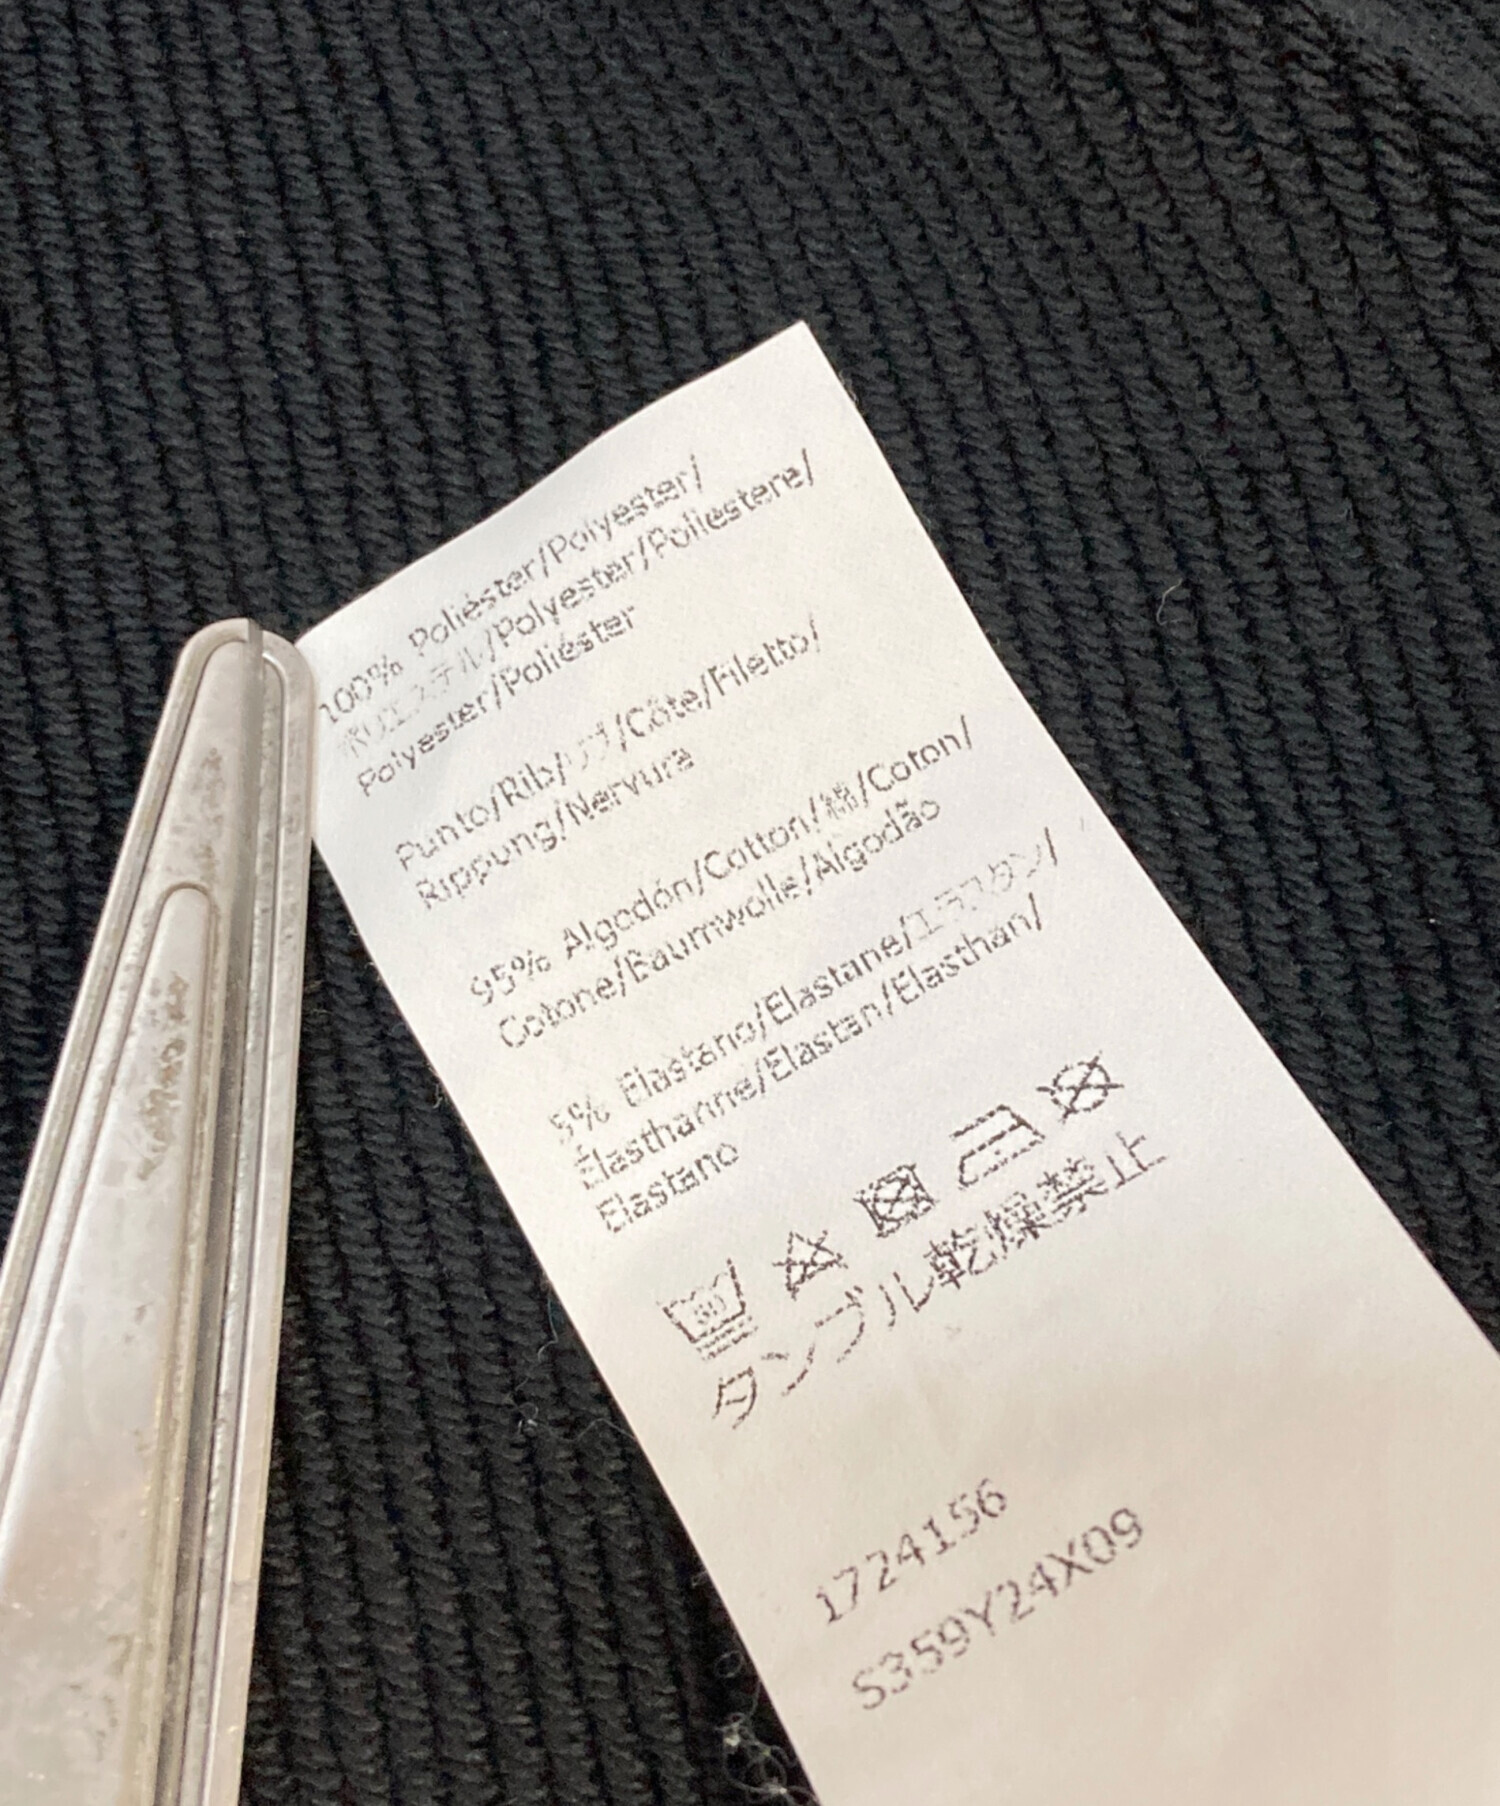 100% Poliéster/Polyester/
ポリエステル/Polyester/Poliestere/
Polyester/Poliéster
Punto/Rib/リブ/Côte/Filetto/
Rippung/Nervura
95% Algodón/Cotton/綿/Coton/
Cotone/Baumwolle/Algodão
5% Elastano/Elastane/エラスタン/
Élasthanne/Elastan/Elasthan/
Elastano
30
タンブル乾燥禁止
1724156
S359Y24X09